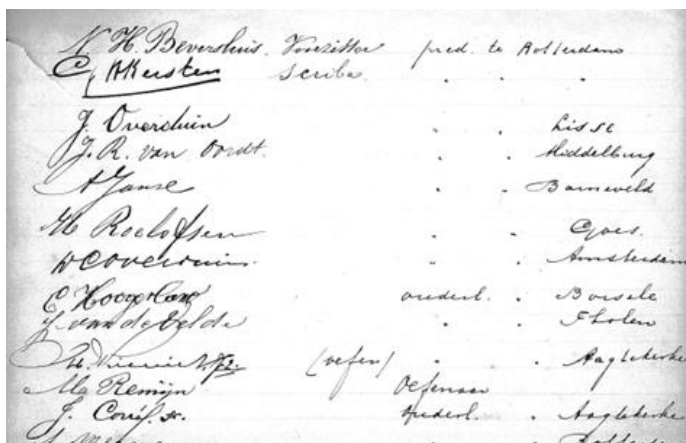 N. H. Beversluis. Voorzitter pred. te Rotterdam
C, Kersten Scriba. " " "
J. Overduin " " Lisse
J. R. van Oordt. " " Middelburg
A Janse " " Barneveld
M. Roelofsen " " Goes.
D C Overduin " " Amsterdam
C Hoogerland ouderl. " Borsele
J. van de Velde " " Tholen
(oefen) " " Aagtekerke
M. Remijn Oefenaar
J. ouderl. " Aagtekerke